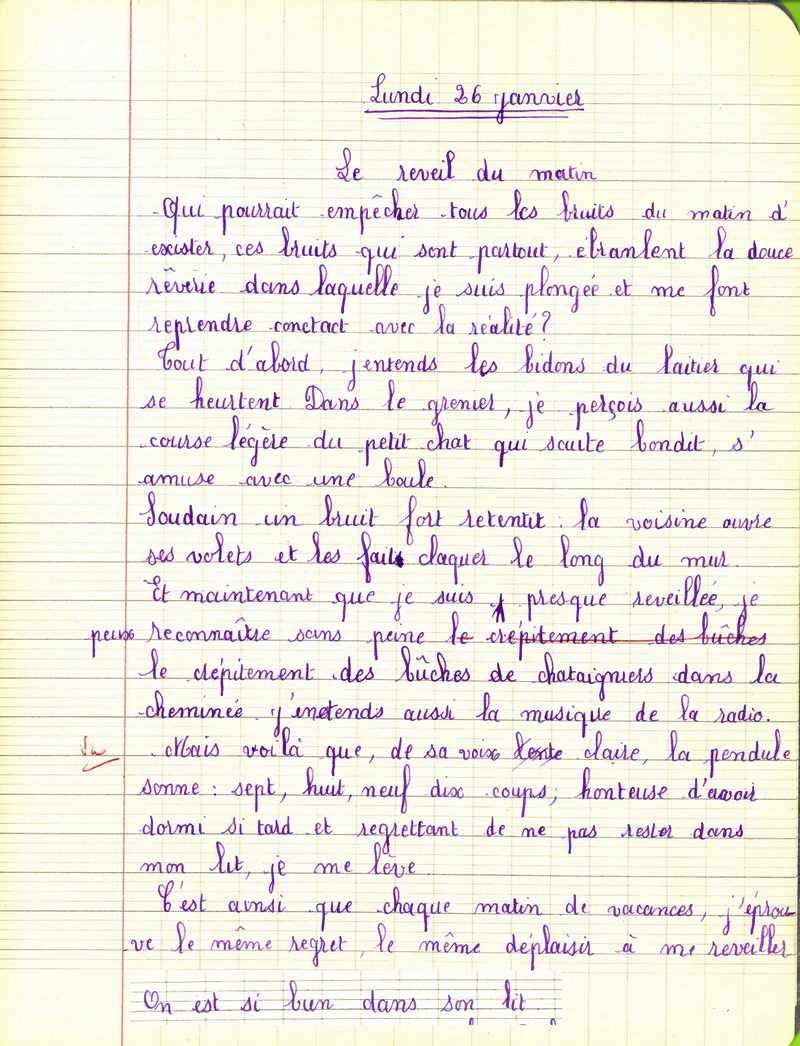 Lundi 26 janvier
Le reveil du matin
Qui pourrait empêcher tous les bruits du matin d'
exister, ces bruits qui sont partout, ébranlent la douce
rêverie dans laquelle je suis plongée et me font
reprendre conctact avec la réalité?
Tout d'abord, j'entends les bidons du laitier qui
se heurtent Dans le grenier, je perçois aussi la
course légère du petit chat qui saute bondit, s'
amuse avec une boule.
Soudain un bruit fort retentit : la voisine ouvre
ses volets et les fait claquer le long du mur.
Et maintenant que je suis presque reveillée, je
peux reconnaître sans peine le crépitement des bûches
le crépitement des bûches de chataigniers dans la
cheminée. j'enetends aussi la musique de la radio.
Mais voilà que, de sa voix lente claire, la pendule
sonne : sept, huit, neuf dix coups; honteuse d'avoir
dormi si tard et regrettant de ne pas rester dans
mon lit, je me lève.
C'est ainsi que chaque matin de vacances, j'éprou-
ve le même regret, le même déplaisir à me reveiller
On est si bien dans son lit.